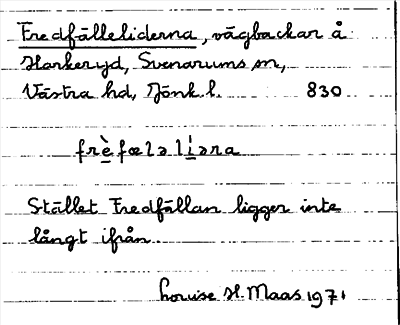 Fredfälleliderna, vägbackar å
Harkeryd, Svenarums sn,
Västra hd, Jönk. l. 830
frèfœlalíəra
Stället Fredfällan ligger inte
långt ifrån.
Louise H. Maas 1971